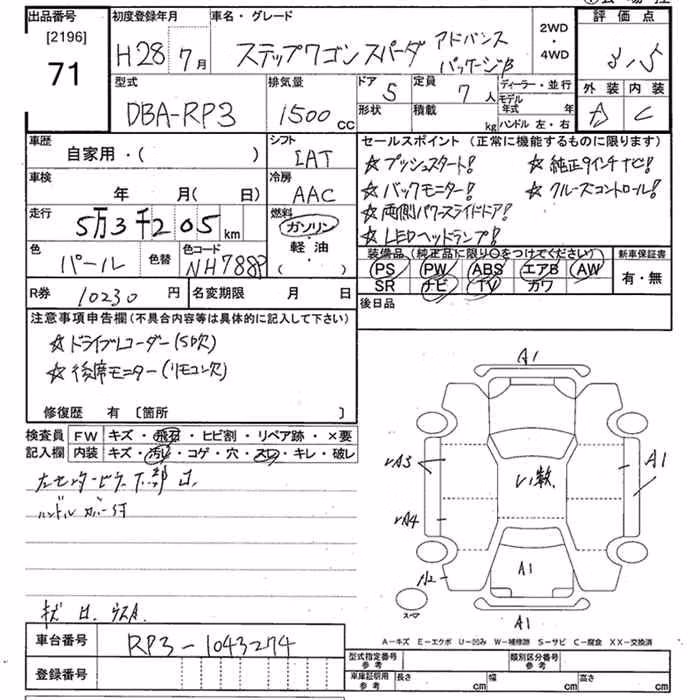 出品番号
[2196]
71
初度登録年月
H28年7月
車名・グレード
ステップワゴンスパーダ アドバンス
パッケージβ
2WD
・
4WD
評価点
3.5
外装 内装
B C
型式
DBA-RP3
排気量
1500 CC
ドア
5
定員
7人
形状
積載
kg
ディーラー・並行
モデル年式 年
ハンドル 左・右
車歴
自家用・( )
シフト
IAT
車検
年 月( 日)
冷房
AAC
走行
5万3千205 km
燃料
ガソリン
・
軽油
・
( )
色
パール
色替
色コード
NH788P
R券
10230円
名変期限 月 日
セールスポイント (正常に機能するものに限ります)
☆プッシュスタート! ☆純正9インチナビ!
☆バックモニター! ☆クルーズコントロール!
☆両側パワースライドドア!
☆LEDヘッドランプ!
装備品 (純正品に限り○をつけてください)
PS PW ABS エアB AW
SR ナビ TV カワ
新車保証書
有・無
後日品
注意事項申告欄 (不具合内容等は具体的に記入して下さい)
☆ドライブレコーダー(SD欠)
☆後席モニター(リモコン欠)
修復歴 有 〔箇所 〕
検査員記入欄
FW キズ・飛石・ヒビ割・リペア跡・×要
内装 キズ・汚レ・コゲ・穴・スレ・キレ・破レ
ハンドルカバー付
A1
A3
A4
A2
い数
A1
A1
A1
スペア
A−キズ E−エクボ U−凹み W−補修跡 S−サビ C−腐食 XX−交換済
車台番号
RP3-1043274
登録番号
型式指定番号
参考
類別区分番号
参考
車庫証明用
参考
長さ cm 幅 cm 高さ cm